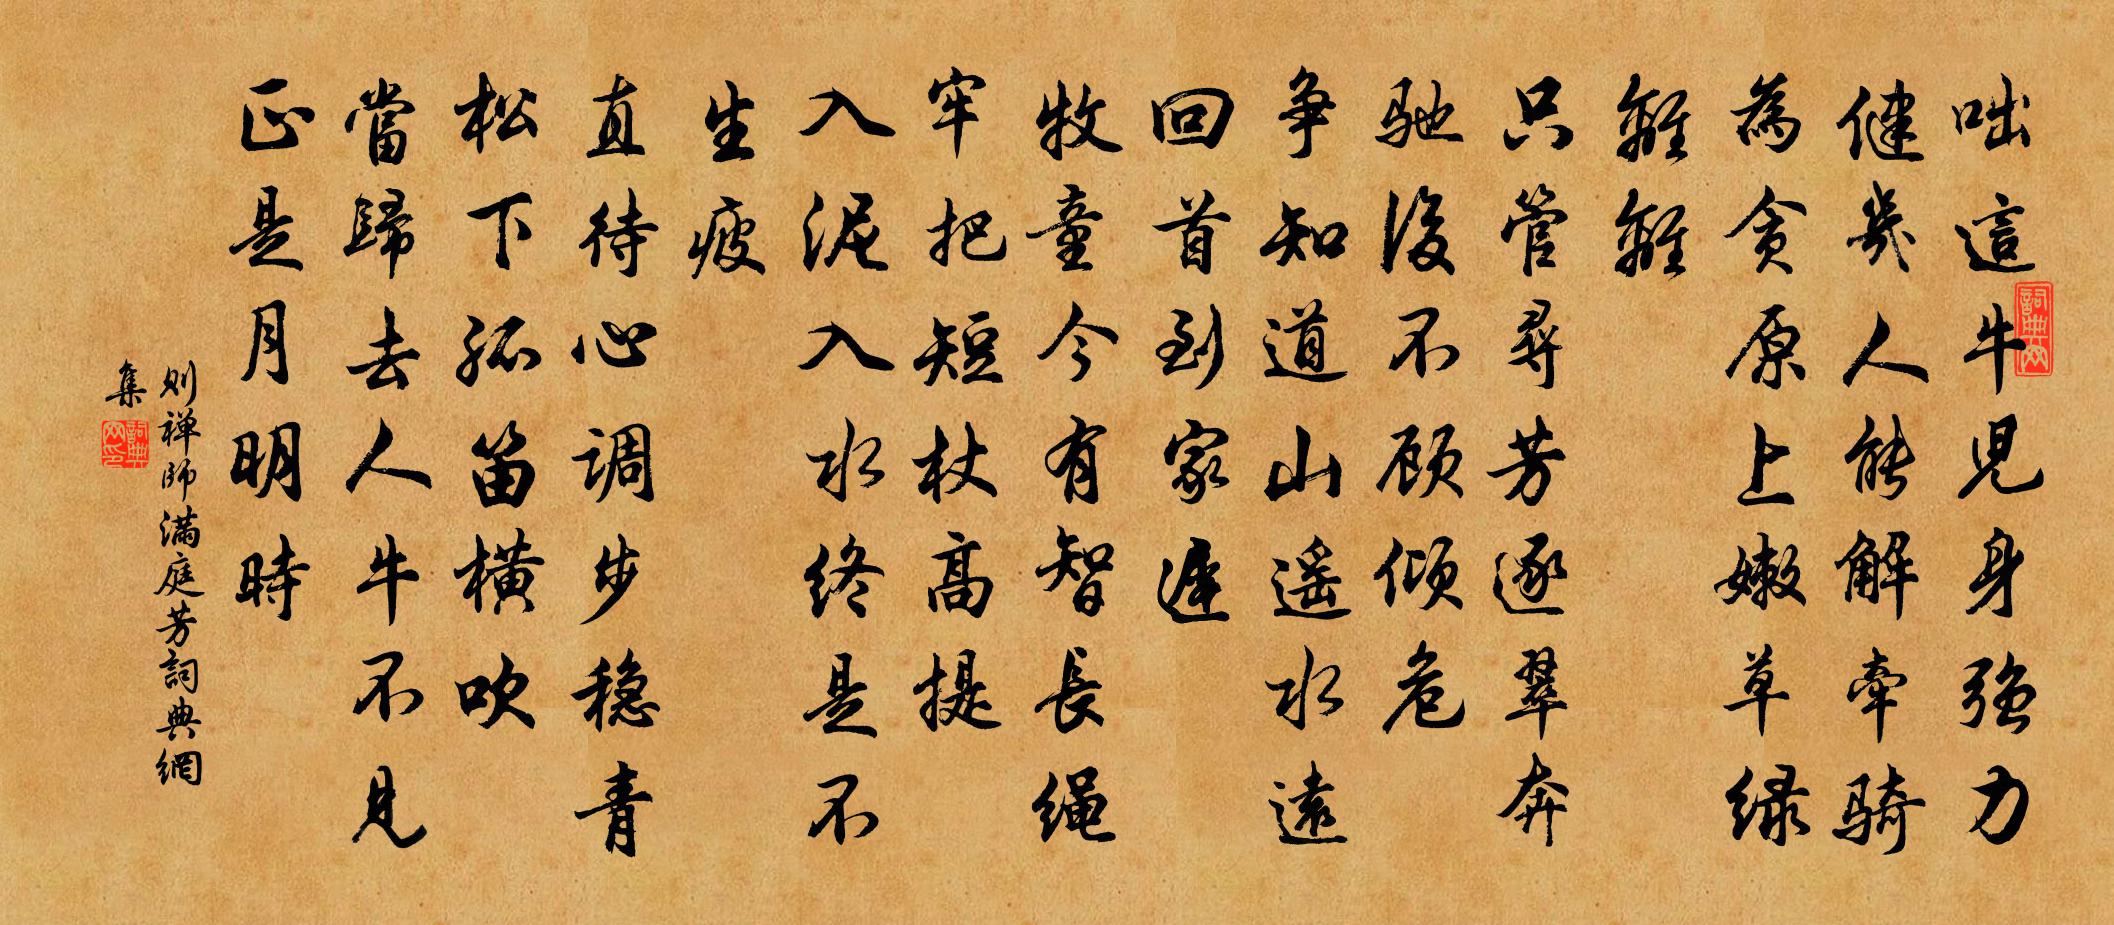 咄這牛児身強力
健幾人能解牽騎
為貪原上嫩草緑
離離
只管尋芳逐翠奔
馳後不顧傾危
争知道山遥水遠
回首到家遲
牧童今有智長繩
牢把短杖高提
入泥入水終是不
生疲
直待心調步穩青
松下孤笛橫吹
當歸去人牛不見
正是月明時
則禅師滿庭芳詞典網
集
詞典网
詞典网印